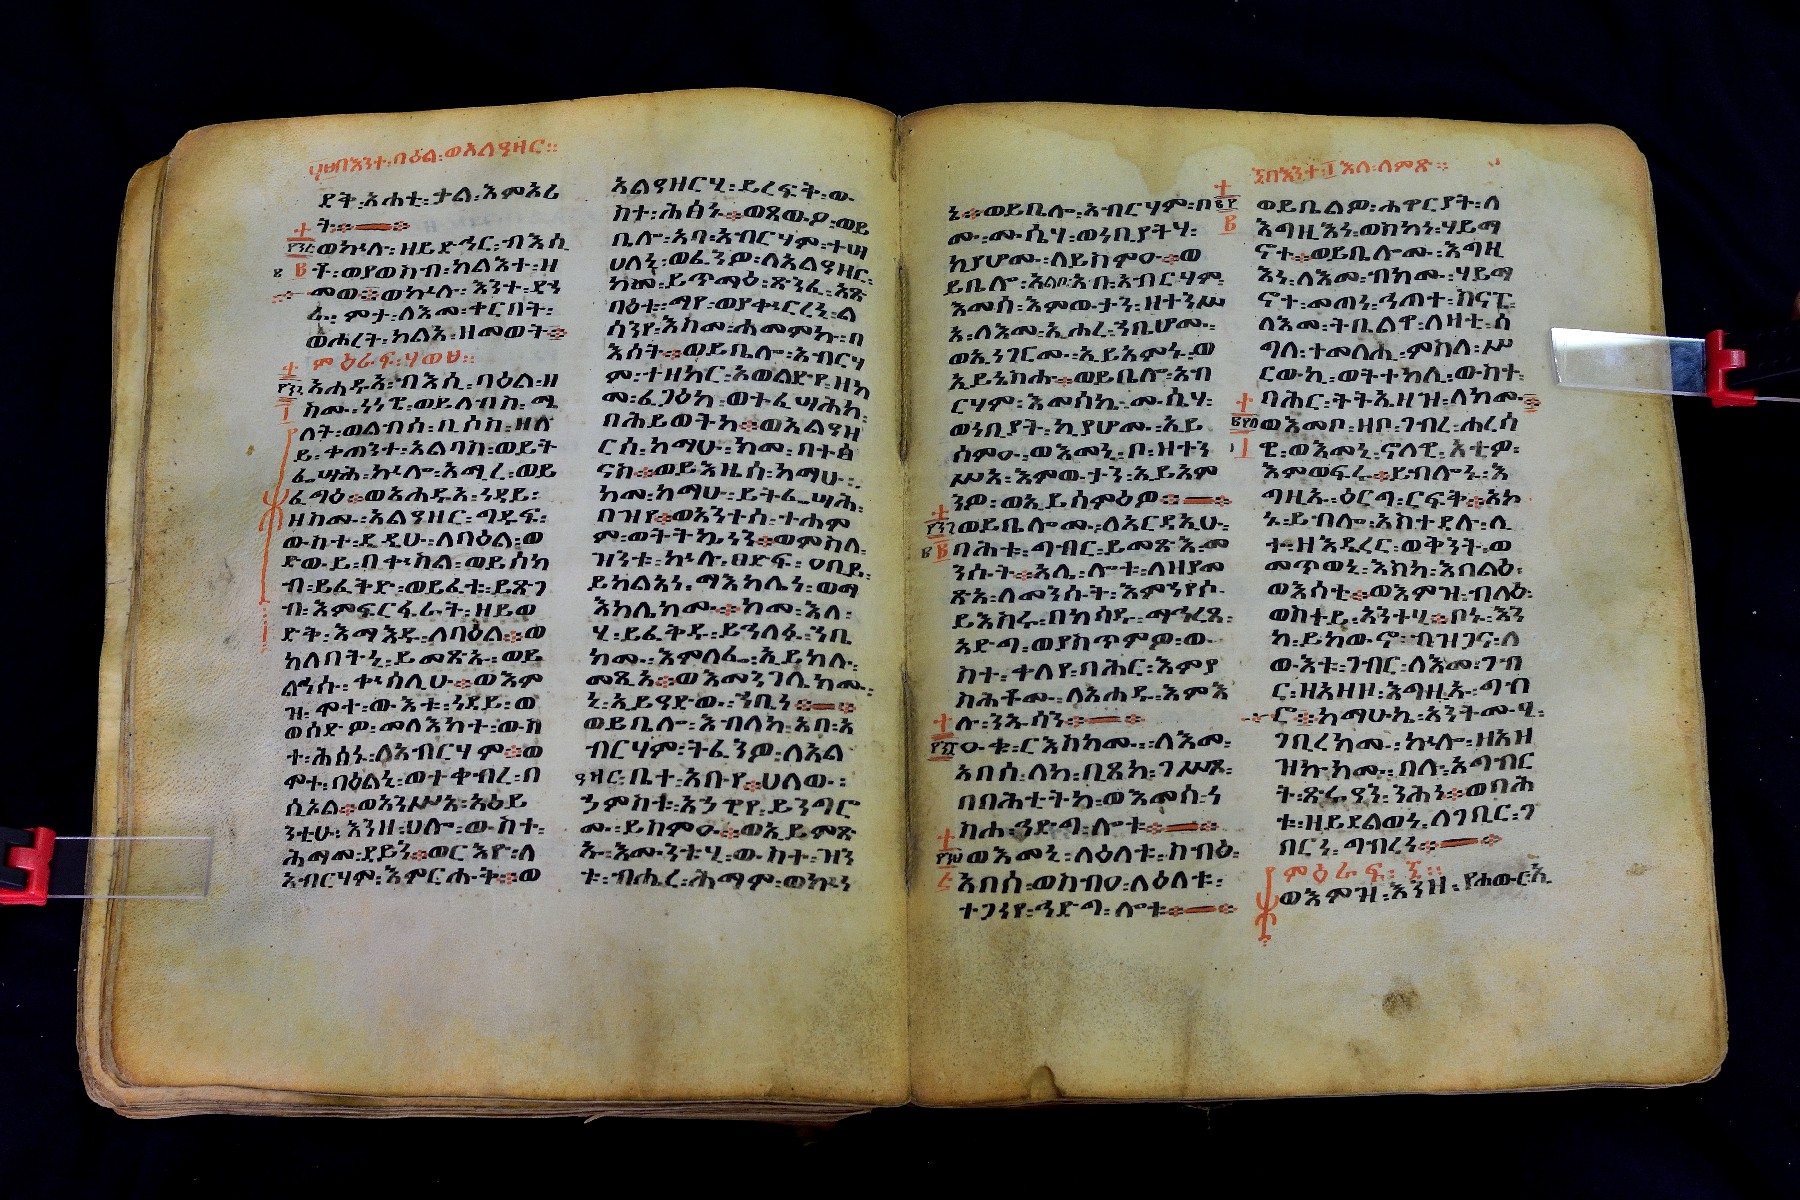 በእንተ፡ባዕል፡ወአልዓዛር፡፡
ይት፡አሐቲ፡ታል፡እምአሪ
ት፡፡
ወኵሉ፡ዘይድኅር፡ብእሲ
ቶ፡ወያወስብ፡ካልእተ፡ዘ
መወ፡፡ወኵሉ፡እንተ፡ደኀ
ራ፡ምታ፡ለእመ፡ተርበት፡
ወሐረት፡ካልእ፡ዘመወት፡፡
ምዕራፍ፡
አሐዱ፡ብእሲ፡ባዕል፡ዘ
ከሙ፡ነነዌ፡ወይለብስ፡ሜ
ላት፡ወልብሰ፡ቢሶስ፡ዘለ
ይ፡ቀጠንት፡አልባስ፡ወይት
ፌሣሕ፡ኵሎ፡አሚረ፡ወይ
ፈግዕ፡፡ወአሐዱ፡ነዳይ፡
ዘስሙ፡አልዓዘር፡ግዱፍ፡
ውስተ፡ደዴሁ፡ለባዕል፡ወ
ድውይ፡በቍስል፡ወይስካ
ብ፡ይፈትድ፡ወይፈቱ፡ይጽገ
ብ፡እምፍርፋራት፡ዘይወ
ድቅ፡እማእዱ፡ለባዕል፡፡ወ
ከለባትኒ፡ይመጽኡ፡ወይ
ልሕሱ፡ቍስሊሁ፡፡ወእም
ዝ፡ሞተ፡ውእቱ፡ነዳይ፡ወ
ወሰድዎ፡መላእክት፡ውስ
ተ፡ሕፅኑ፡ለአብርሃም፡፡ወ
ሞተ፡ባዕልኒ፡ወተቀብረ፡በ
ሲኦል፡፡ወአንሥአ፡አዕይ
ንቲሁ፡እንዘ፡ሀሎ፡ውስተ፡
ሕማመ፡ደይን፡፡ወርእዮ፡ለ
አብርሃም፡እምርሑቅ፡፡ወ
አልዓዘርሃ፡ይረፍት፡ው
ስተ፡ሕፅኑ፡፡ወጸውዐ፡ወይ
ቤሎ፡አባ፡አብርሃም፡ተሣ
ሀለኒ፡ወፈንዎ፡ለአልዓዘር፡
ከመ፡ይጥማዕ፡ጽንፈ፡አጽ
ባዕቱ፡ማየ፡ወያቍርረኒ፡ል
ሳንየ፡እስመ፡ሐመምኩ፡በ
እሳት፡፡ወይቤሎ፡አብርሃ
ም፡ተዘከር፡አወልድየ፡ዘከ
መ፡ፈጋዕከ፡ወተፈሣሕከ፡
በሕይወትከ፡፡ወአልዓዘ
ርሰ፡ከማሁ፡ከመ፡በተፅ
ናስ፡፡ወይእዜሰ፡ከማሁ፡
ከመ፡ከማሁ፡ይትፌሣሕ፡
በዝየ፡፡ወአንተሰ፡ተሐም
ም፡ወትትኴነን፡፡ወምስለ፡
ዝንቱ፡ኵሉ፡ፀድፍ፡ዐቢይ፡
ይከልአነ፡ማእከሌነ፡ወማ
እከሌከሙ፡፡ከመ፡እለ፡
ሂ፡ይፈቅዱ፡ይኅለፉ፡ኀቤ
ከሙ፡እምለፌ፡ኢይክሉ፡
መጺአ፡፡ወእመንገሌከሙ፡
ኒ፡ኢይዓድው፡ኀቤነ፡፡
ወይቤሎ፡እብለከ፡አባ፡አ
ብርሃም፡ትፈንዎ፡ለአል
ዓዛር፡ቤተ፡አቡየ፡፡ሀለው፡
ኃምስቱ፡አኃዊየ፡ይንግሮ
ሙ፡ይስምዑ፡፡ወኢይምጽ
ኡ፡እሙንቱሂ፡ውስተ፡ዝን
ቱ፡ብሔረ፡ሕማም፡ወኵነ
ኔ፡፡ወይቤሎ፡አብርሃም፡ቦ
ሙ፡ሙሴሃ፡ወነቢያትሃ፡
ኪያሆሙ፡ለይስምዑ፡፡ወ
ይቤሎ፡አልቦ፡አባ፡አብርሃም፡
እመሰ፡እምውታን፡ዘተንሥ
አ፡ለእመ፡ኢሖረ፡ኀቤሆሙ፡
ወኢነገርሙ፡ኢይአምኑ፡ወ
ኢይኔስሑ፡፡ወይቤሎ፡አብ
ርሃም፡እመሰኬ፡ሙሴሃ፡
ወነቢያት፡ኪያሆሙ፡ኢይ
ሰምዑ፡ወእመኒ፡ቦ፡ዘተን
ሥአ፡እምውታን፡ኢይአም
ንዎ፡ወኢይሰምዕዎ፡፡
ወይቤሎሙ፡ለአርዳኢሁ፡
ባሕቱ፡ግብር፡ይመጽእ፡መ
ንሱት፡፡አሌ፡ሎቱ፡ለዘያመ
ጽእ፡ለመንሱት፡እምኀየሶ፡
ይእስሩ፡በክሳዱ፡ማኅረጸ፡
አድግ፡ወያስጥምዎ፡ው
ስተ፡ቀላየ፡ባሕር፡እምያ
ስሕቶሙ፡ለአሐዱ፡እምእ
ሉ፡ንኡሳን፡፡
ዑቁ፡ርእስክሙ፡ለእመ፡
አበሰ፡ለከ፡ቢጽከ፡ገሥጾ፡
በባሕቲትከ፡ወእመሰ፡ነ
ስሐ፡ኅድግ፡ሎቱ፡፡
ወእመኒ፡ለዕለቱ፡ስብዕ፡
አበሰ፡ወስብዐ፡ለዕለቱ፡
ተጋነየ፡ኅድግ፡ሎቱ፡፡
በእንተ፡፲እለ፡ለምጽ፡፡
ወይቤልዎ፡ሐዋርያት፡ለ
እግዚእነ፡ወስከነ፡ሃይማ
ኖተ፡፡ወይቤሎሙ፡እግዚ
እነ፡ለእመ፡ብክሙ፡ሃይማ
ኖተ፡መጠነ፡ኅጠተ፡ስናፔ፡
ለእመ፡ትቤልዋ፡ለዛቲ፡ሰ
ግላ፡ተመለሒ፡ምስለ፡ሥ
ርውኪ፡ወትተከሊ፡ውስተ፡
ባሕር፡ትትኤዘዝ፡ለክሙ፡፡
ወእመቦ፡ዘቦ፡ገብረ፡ሐረሳ
ዊ፡ወእመኒ፡ኖላዊ፡አቲዎ፡
እምወፍሩ፡፡ይብሎኒ፡እ
ግዚኡ፡ዕርግ፡ርፍቅ፡፡አኮ
ኑ፡ይብሎ፡አስተዳሉ፡ሊ
ተ፡ዘእዴረር፡ወቅንት፡ወ
መጥወኒ፡እስከ፡እበልዕ፡
ወእሰቲ፡፡ወእምዝ፡ብላዕ፡
ወስተይ፡አንተሂ፡፡ቦኑ፡እን
ከ፡ይከውኖ፡በዝጋና፡ለ
ውእቱ፡ገብር፡ለእመ፡ገብ
ረ፡ዘአዘዘ፡እግዚኡ፡ግብ
ሮ፡፡ከማሁኬ፡አንትሙሂ፡
ገቢረክሙ፡ኵሎ፡ዘአዘ
ዝኩክሙ፡በሉ፡አግብር
ት፡ጽራዓን፡ንሕነ፡፡ወባሕ
ቱ፡ዘይደልወነ፡ለገቢር፡ገ
በርነ፡ግብረነ፡፡
ምዕራፍ፡፡
ወእምዝ፡እንዘ፡የሐውር፡ኢ